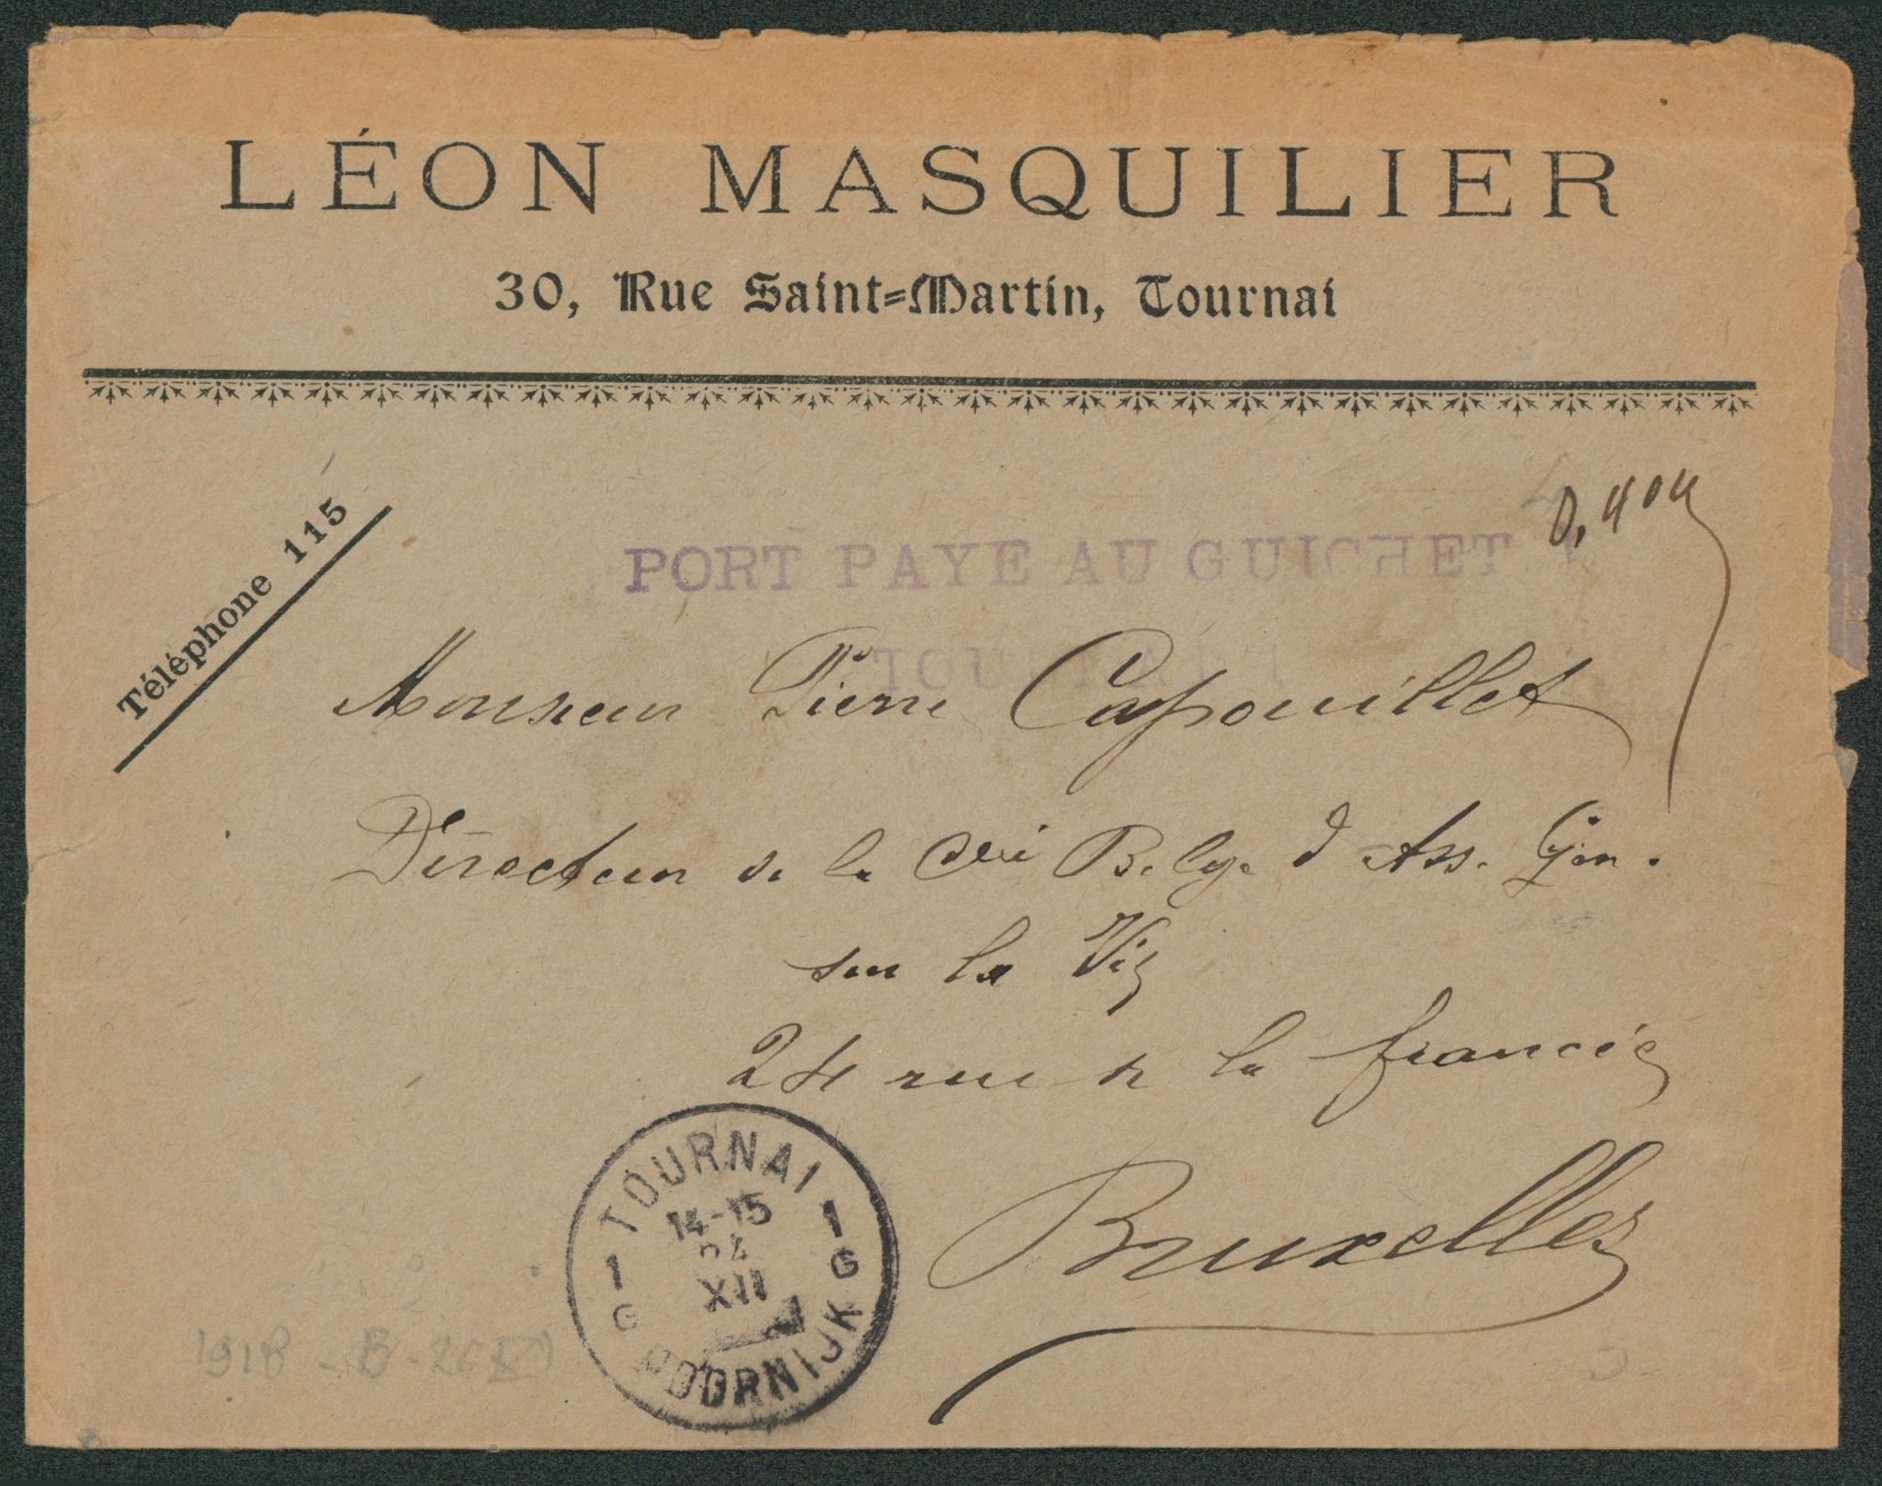 LÉON MASQUILIER
30, Rue Saint=Martin, Tournai
Téléphone 115
0,40
PORT PAYE AU GUICHET
TOURNAI 1
Monsieur Pierre Capouillet
Directeur de la Cie Belge d'Ass. Gén.
sur la Vie
24 rue de la fiancée
Bruxelles
TOURNAI
14-15
XII
1 G
1 G
DOORNIJK
1918 - B-